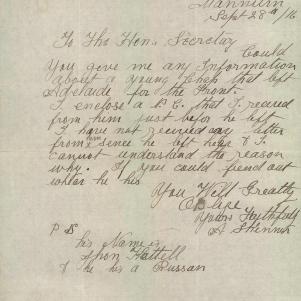 Mannum
Sept 28th /16
To The Hon. Secretary
Could
You give me any Information
about a young Chep that left
Adelaide for the Front.
I enclose a P.C. that I receved
from them just befor he left
I have not received any letter
from him since he left here & I
cannot understand the reason
why. If you could fiend out
where he his
You Will Greatly
Oblige
Yours Faithfully
A
P S
his Name is
Hattell
& he his a Russan